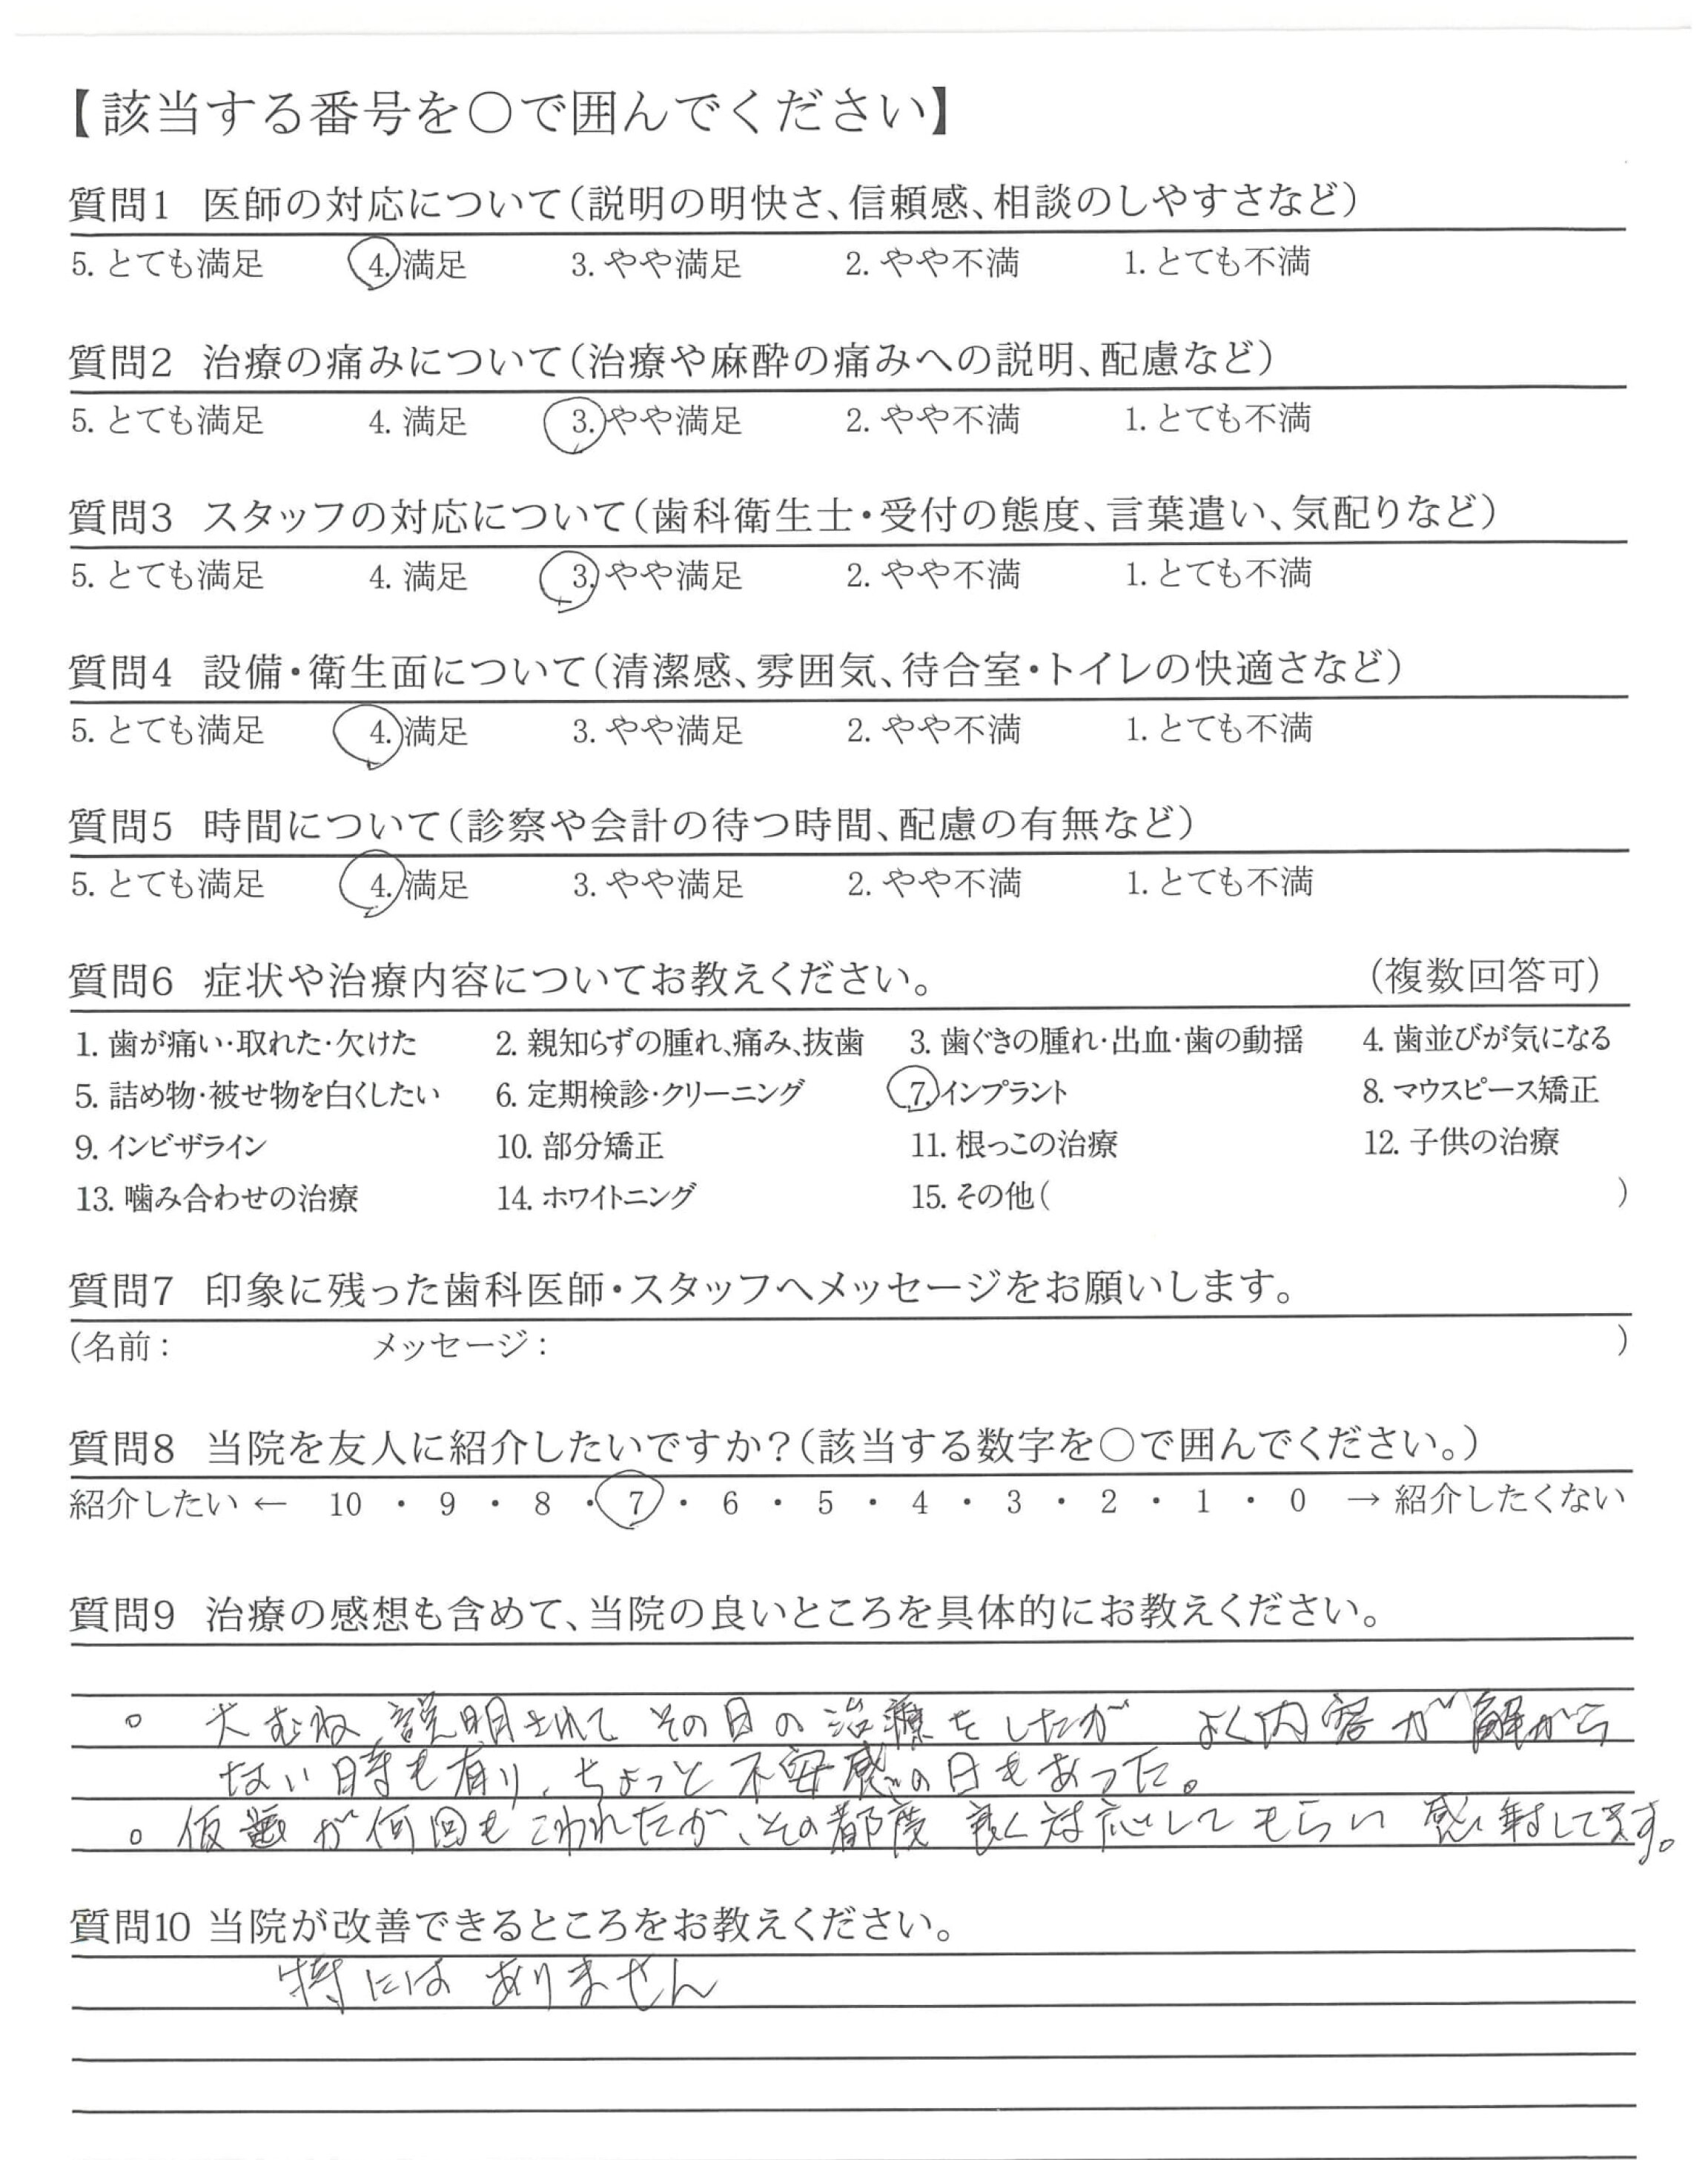 【該当する番号を○で囲んでください】
質問1 医師の対応について（説明の明快さ、信頼感、相談のしやすさなど）
5. とても満足 4. 満足 3. やや満足 2. やや不満 1. とても不満
質問2 治療の痛みについて（治療や麻酔の痛みへの説明、配慮など）
5. とても満足 4. 満足 3. やや満足 2. やや不満 1. とても不満
質問3 スタッフの対応について（歯科衛生士・受付の態度、言葉遣い、気配りなど）
5. とても満足 4. 満足 3. やや満足 2. やや不満 1. とても不満
質問4 設備・衛生面について（清潔感、雰囲気、待合室・トイレの快適さなど）
5. とても満足 4. 満足 3. やや満足 2. やや不満 1. とても不満
質問5 時間について（診察や会計の待つ時間、配慮の有無など）
5. とても満足 4. 満足 3. やや満足 2. やや不満 1. とても不満
質問6 症状や治療内容についてお教えください。 （複数回答可）
1. 歯が痛い・取れた・欠けた 2. 親知らずの腫れ、痛み、抜歯 3. 歯ぐきの腫れ・出血・歯の動揺 4. 歯並びが気になる
5. 詰め物・被せ物を白くしたい 6. 定期検診・クリーニング 7. インプラント 8. マウスピース矯正
9. インビザライン 10. 部分矯正 11. 根っこの治療 12. 子供の治療
13. 噛み合わせの治療 14. ホワイトニング 15. その他( )
質問7 印象に残った歯科医師・スタッフへメッセージをお願いします。
(名前： メッセージ： )
質問8 当院を友人に紹介したいですか？（該当する数字を○で囲んでください。）
紹介したい ← 10 ・ 9 ・ 8 ・ 7 ・ 6 ・ 5 ・ 4 ・ 3 ・ 2 ・ 1 ・ 0 → 紹介したくない
質問9 治療の感想も含めて、当院の良いところを具体的にお教えください。
。 大むね 説明されて その日の治療をしたが よく内容が解から
ない時も有り、ちょっと不安感の日もあった。
。仮歯が何回もこわれたが、その都度 良く対応してもらい 感謝してます。
質問10 当院が改善できるところをお教えください。
特には ありません